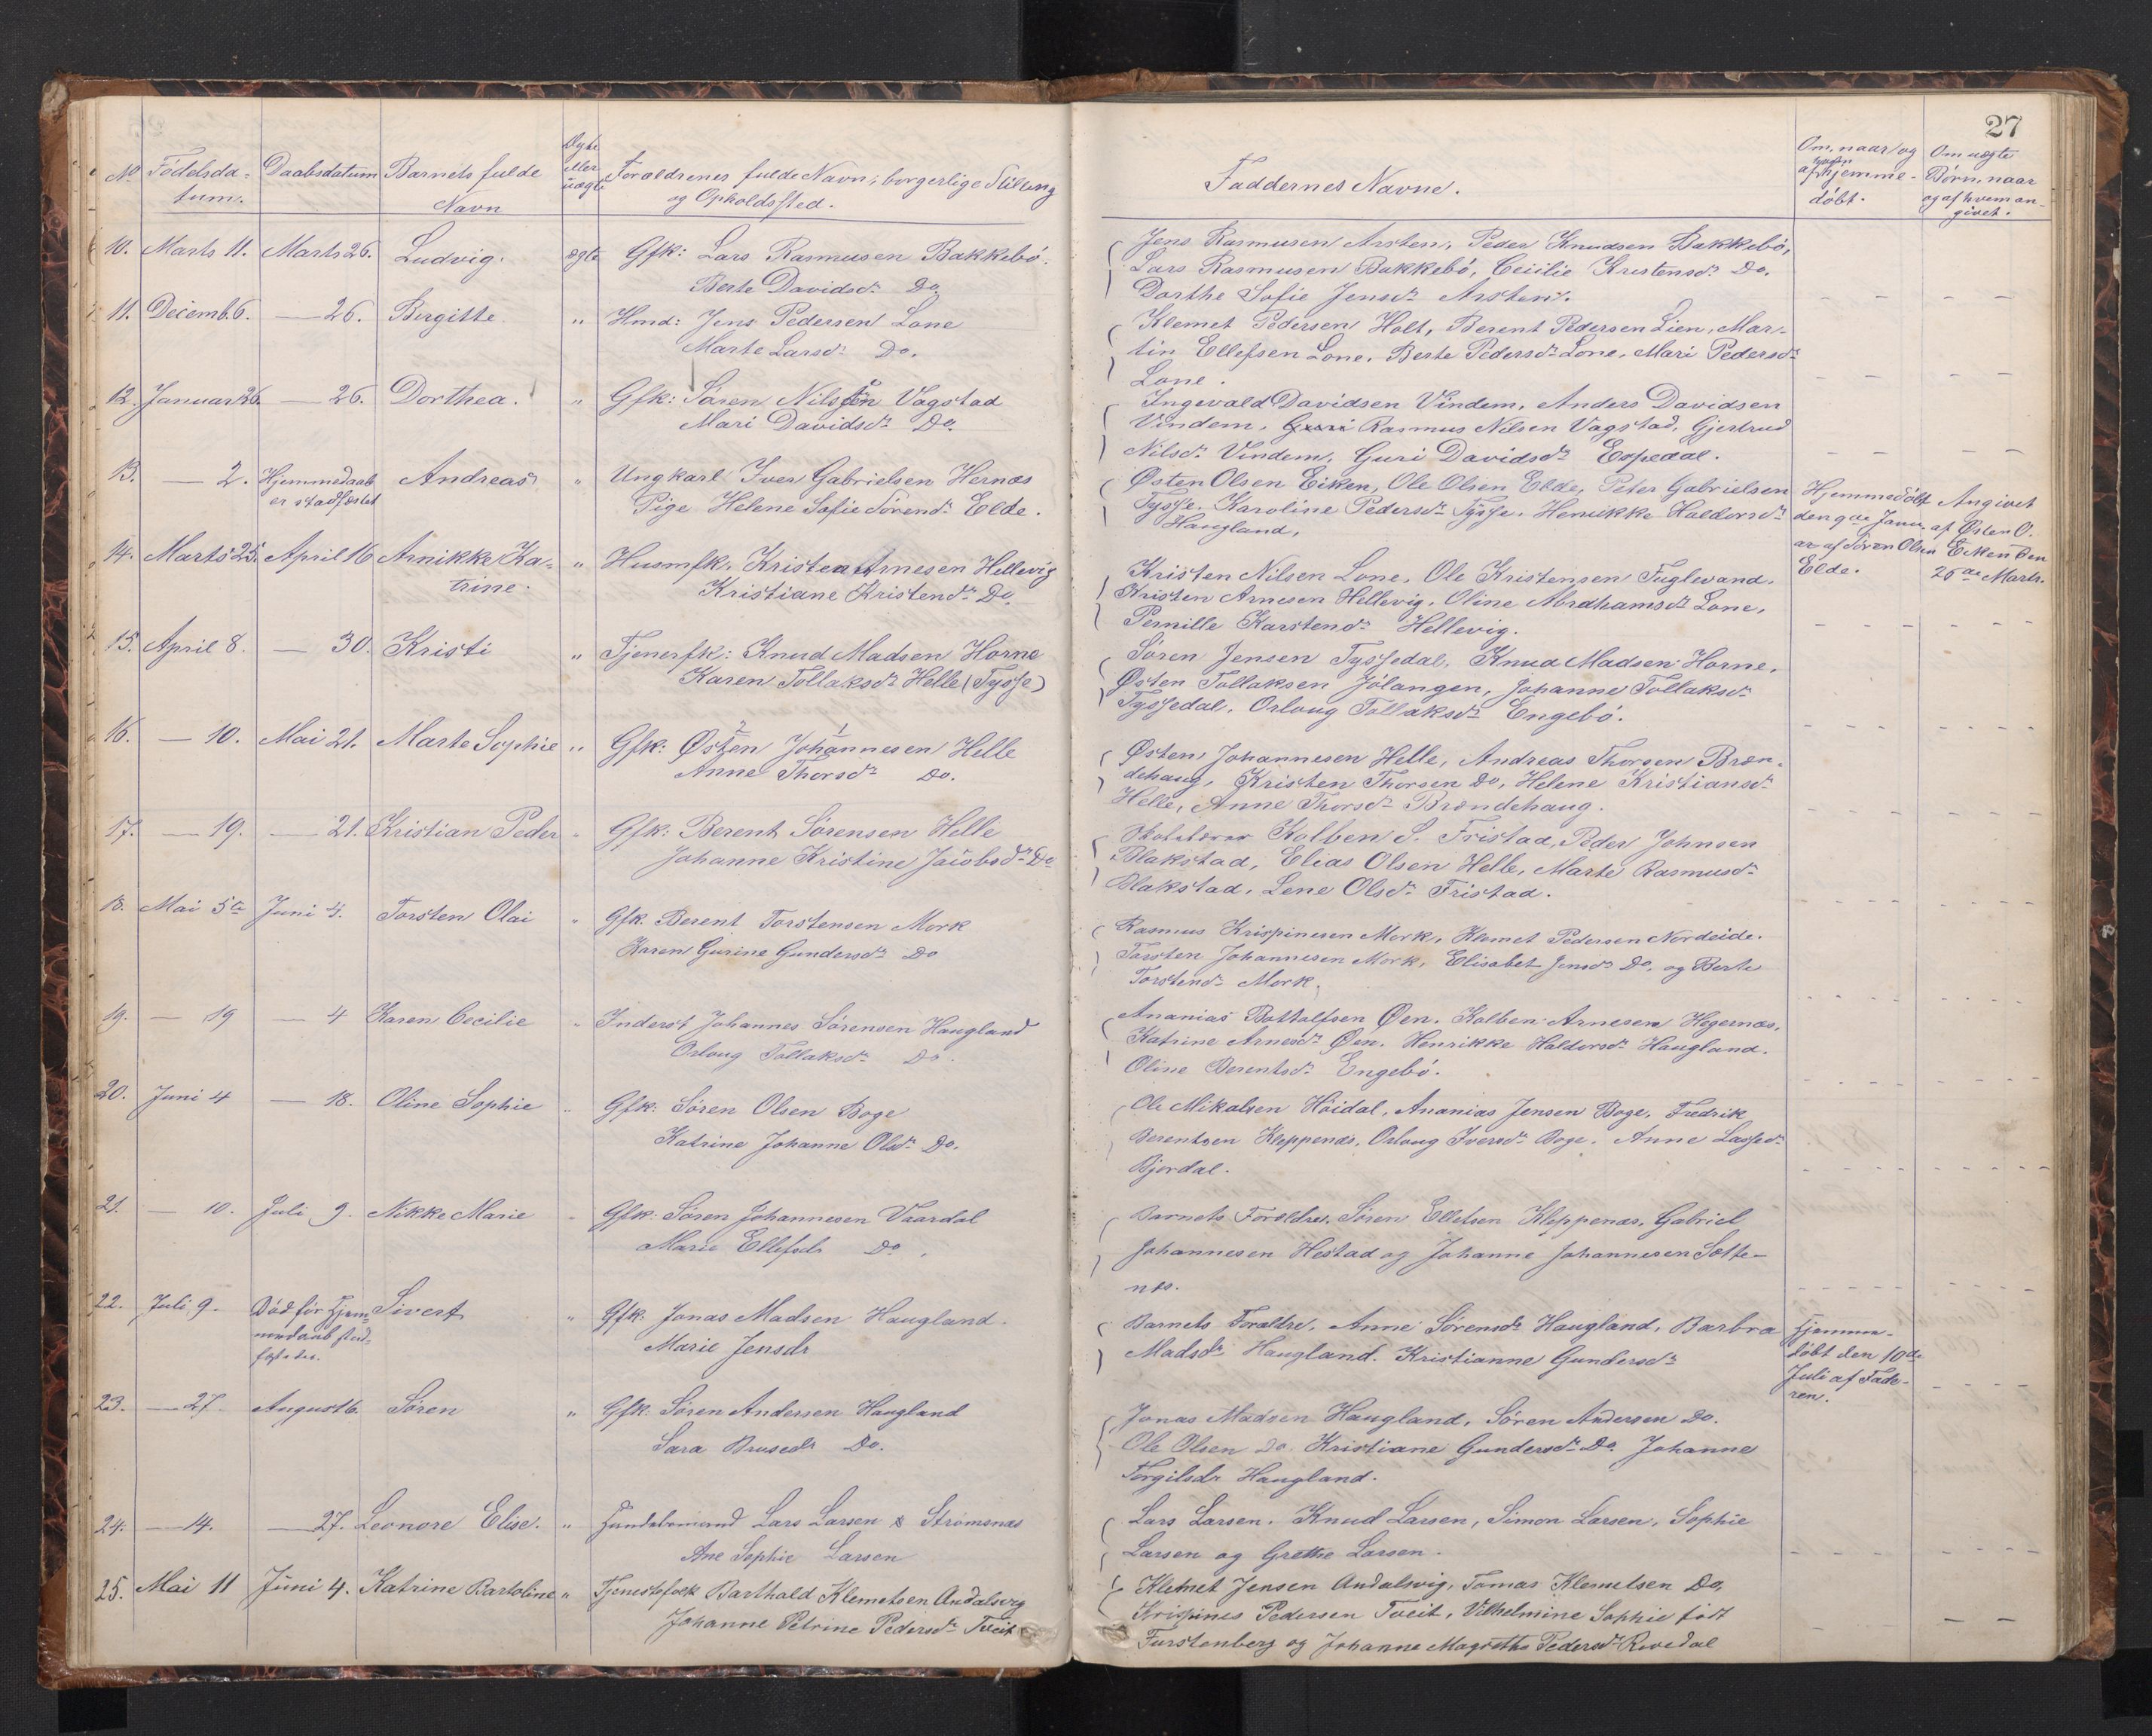 27
No Födelsda- Daabsdatum Barnets fulde Ægte eller uægte Foroldrenes fulde Navn, borgerlige Stilling
tum. Navn og Opholdssted.
Faddernes Navne.
Om, naar og af hvem hjemme-
döbt.
Om uægte
Børn, naar
og af hvem an-
givet.
10. Marts 11. Marts 26. Ludvig. ægte Gfk: Lars Rasmusen Bakkebö.
Berte Davidsdr Do.
Jens Rasmusen Arsten, Peder Knudsen Bakkebö,
Lars Rasmusen Bakkebö, Ceiilie Kristensdr Do.
Dorthe Sofie Jensdr Arsten.
11. Decemb. 6. — 26. Birgitte " Hmd: Jens Pedersen Lone
Marte Larsdr Do.
Klemet Pedersen Holt, Berent Pedersen Lien, Mar-
tin Ellefsen Lone, Berte Pedersdr Lone, Mari Pedersdr
Lone.
12. Januar 26. — 26. Dorthea. " Gfk: Sören Nilssen Vagstad
Mari Davidsdr Do.
Ingevald Davidsen Vindem, Anders Davidsen
Vindem, Guri Rasmus Nilsen Vagstad, Gjertrud
Nilsdr Vindem, Guri Davidsdr Espedal.
13. — 2. Hjemmedaab Andreas " Ungkarl Iver Gabrielsen Hernæs
er stadfæstet Pige Helene Sofie Sörendr Elde.
Østen Olsen Eiken, Ole Olsen Elde, Peter Gabrielsen
Tysse, Karoline Pedersdr Tysse, Henrikke Haldorsdr
Haugland,
Hjemmedöbt
den 9de Janu-
ar af Sören Olsen
Elde.
Angivet
af Østen O.
Eiken den
26de Marts.
14. Marts 25. April 16 Arnikke Ka- " Husmfk. Kristen Arnesen Hellevig
trine. Kristiane Kristendr Do.
Kristen Nilsen Lone, Ole Kristensen Fuglevand,
Kristen Arnesen Hellevig, Oline Abrahamsdr Lone,
Pernille Karstendr Hellevig.
15. April 8. — 30. Kristi " Tjenerfk: Knud Madsen Horne
Karen Tollaksdr Helle (Tysse)
Sören Jensen Tyssedal, Knud Madsen Horne,
Østen Tollaksen Jölangen, Johanne Tollaksdr
Tyssedal, Orloug Tollaksdr Engebö.
16. — 10. Mai 21. Marte Sophie " Gfk: Østen Johannesen Helle
Anne Thorsdr Do.
Østen Johannesen Helle, Andreas Thorsen Bræn-
dehaug, Kristen Thorsen Do, Helene Kristiansdr
Helle, Anne Thorsdr Brændehaug.
17. — 19. — 21. Kristian Peder " Gfk: Berent Sörensen Helle
Johanne Kristine Jacobsdr Do
Kolben S. Fristad, Peder Johnsen
Blakstad, Elias Olsen Helle, Marte Rasmusdr
Blakstad, Lene Olsdr Fristad.
18. Mai 5te Juni 4. Torsten Olai " Gfk. Berent Torstensen Mork
Karen Gurine Gundersdr Do
Rasmus Krispinesen Mork, Klemet Pedersen Nordeide.
Torsten Johannesen Mork, Elisabet Jensdr Do, og Berte
Torstendr Mork.
19. — 19 — 4 Karen Cecilie " Inderst Johannes Sörensen Haugland
Orloug Tollaksdr Do.
Ananias Bottolfsen Øen. Kolben Arnesen Hegernæs,
Katrine Arnesdr Øen. Henrikke Haldorsdr Haugland.
Oline Berentsdr Engebö.
20. Juni 4 — 18. Oline Sophie " Gfk: Sören Olsen Boge
Katrine Johanne Olsdr Do.
Ole Mikalsen Höidal, Ananias Jensen Boge, Fredrik
Berentsen Kleppenæs, Orloug Iversdr Boge, Anne Lassedr
Bjordal.
21. — 10. Juli 9. Nikke Marie Gfk: Sören Johannesen Vaardal
Marie Ellefsdr Do.
Barnets Foroldre. Sören Ellefsen Kleppenæs, Gabriel
Johannesen Hestad og Johanne Johannesen Sotte-
næs.
22. Juli 9. Död för Hjem- Sivert " Gfk: Jonas Madsen Haugland.
medaab stad-
fæstedes. Marie Jensdr
Barnets Foroldre. Anne Sörensdr Haugland, Barbra
Madsdr Haugland. Kristianne Gundersdr
Hjemme-
döbt den 10de
Juli af Fade-
ren.
23. — 27. August 6. Sören " Gfk: Sören Andersen Haugland
Sara Brusedr Do.
Jonas Madsen Haugland, Sören Andersen Do.
Ole Olsen Do. Kristiane Gundersdr Do. Johanne
Torgilsdr Haugland.
24. — 14. — 27. Leonore Elise. " Handelsmand Lars Larsen Strömsnæs
Ane Sophie Larsen
Lars Larsen. Knud Larsen, Simon Larsen, Sophie
Larsen og Grethe Larsen.
25. Mai 11 Juni 4. Katrine Bartoline " Tjenestefolk Barthald Klemetsen Andalsvig
Johanne Petrine Pedersdr Tveit
Klemet Jensen Andalsvig, Tomas Klemetsen Do,
Krispines Pedersen Tveit, Vilhelmine Sophie født
Furstenberg og Johanne Magrethe Pedersdr Rivedal